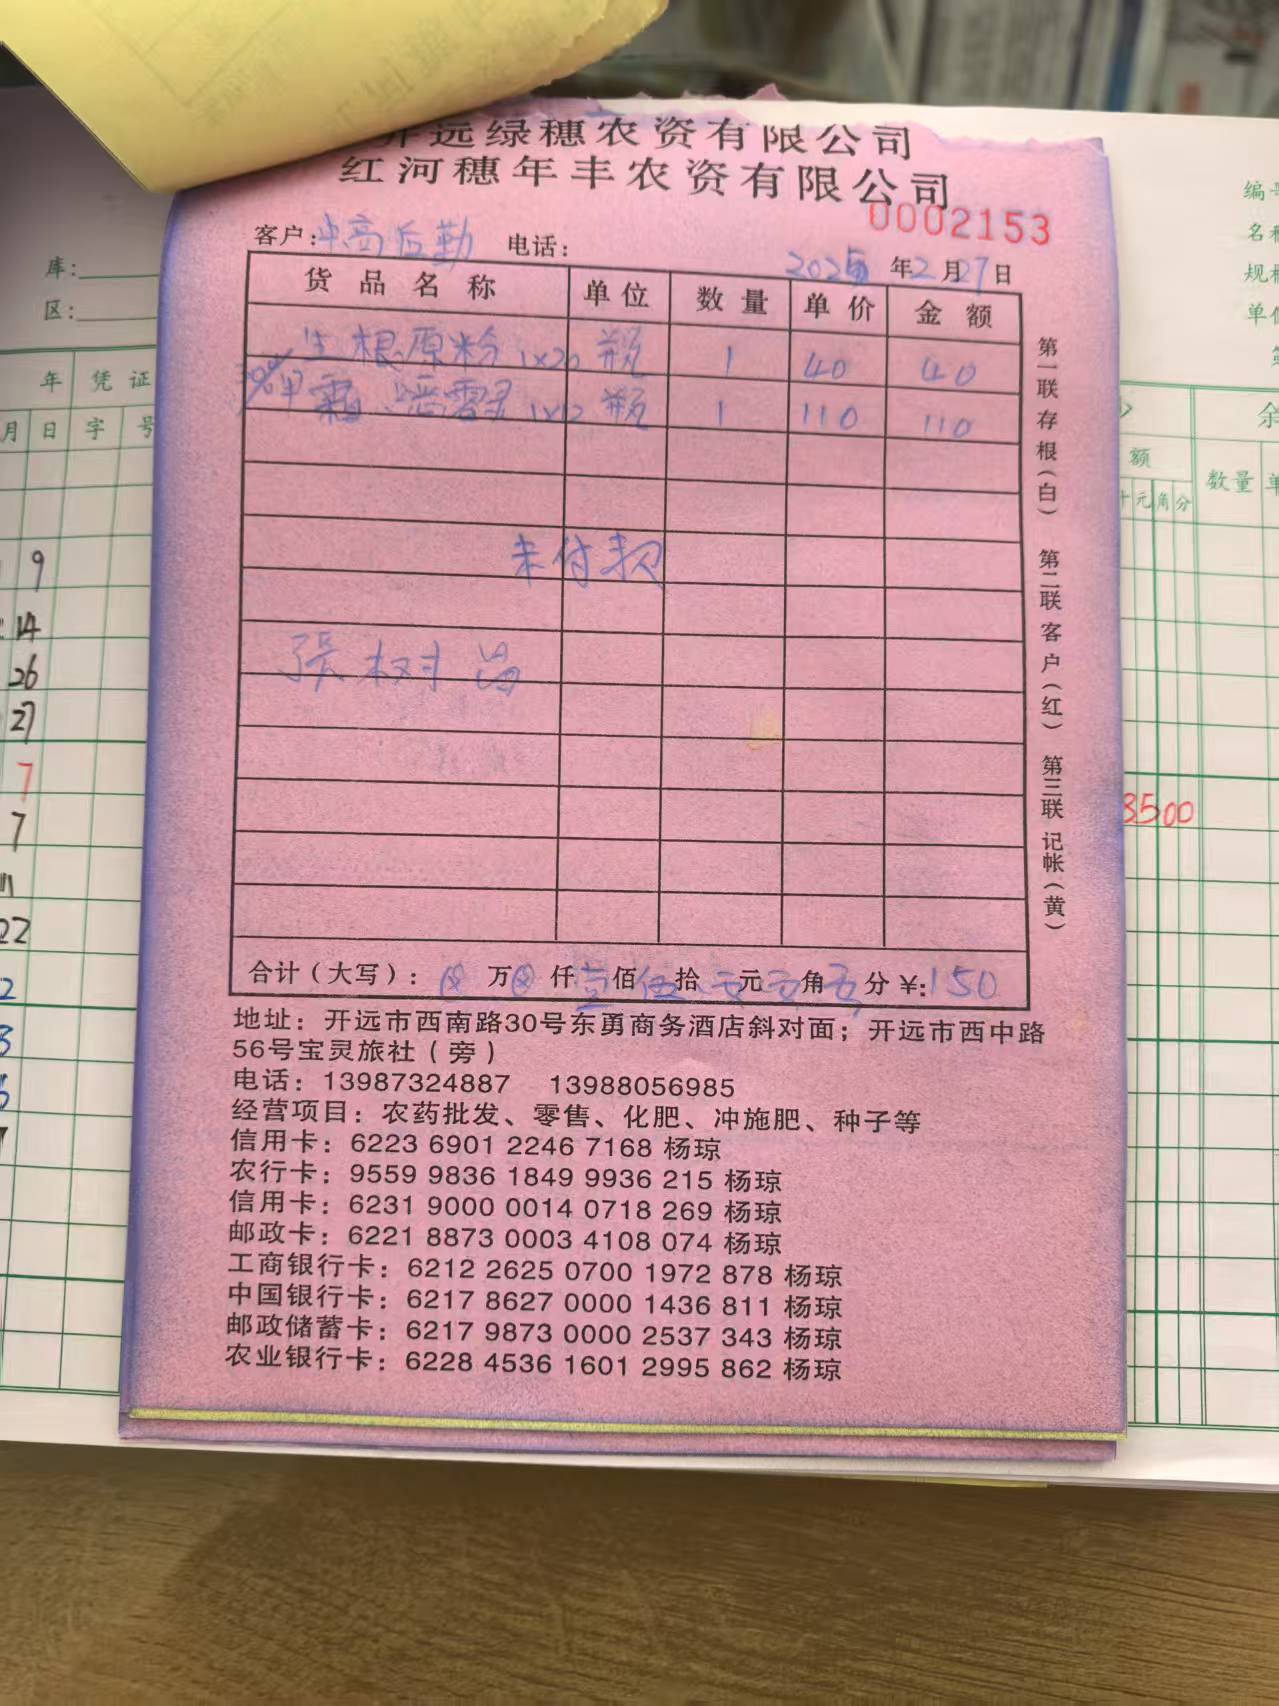 开远绿穗农资有限公司
红河穗年丰农资有限公司
0002153
客户: 中高后勤 电话:
2025年2月27日
货品名称 单位 数量 单价 金额
生根原粉 1×20 瓶 1 40 40
30%甲霜·噁霉灵 1×12 瓶 1 110 110
未付款
张树
合计(大写): ⊗万⊗仟壹佰伍拾元角分¥:150
第一联存根(白) 第二联客户(红) 第三联记帐(黄)
地址: 开远市西南路30号东勇商务酒店斜对面; 开远市西中路
56号宝灵旅社(旁)
电话: 13987324887 13988056985
经营项目: 农药批发、零售、化肥、冲施肥、种子等
信用卡: 6223 6901 2246 7168 杨琼
农行卡: 9559 9836 1849 9936 215 杨琼
信用卡: 6231 9000 0014 0718 269 杨琼
邮政卡: 6221 8873 0003 4108 074 杨琼
工商银行卡: 6212 2625 0700 1972 878 杨琼
中国银行卡: 6217 8627 0000 1436 811 杨琼
邮政储蓄卡: 6217 9873 0000 2537 343 杨琼
农业银行卡: 6228 4536 1601 2995 862 杨琼
库:
区:
年 凭证
月 日 字 号
9
14
26
27
7
7
22
2
3
编号
名称
规格
单位
余
额
数量 单
十元角分
3500